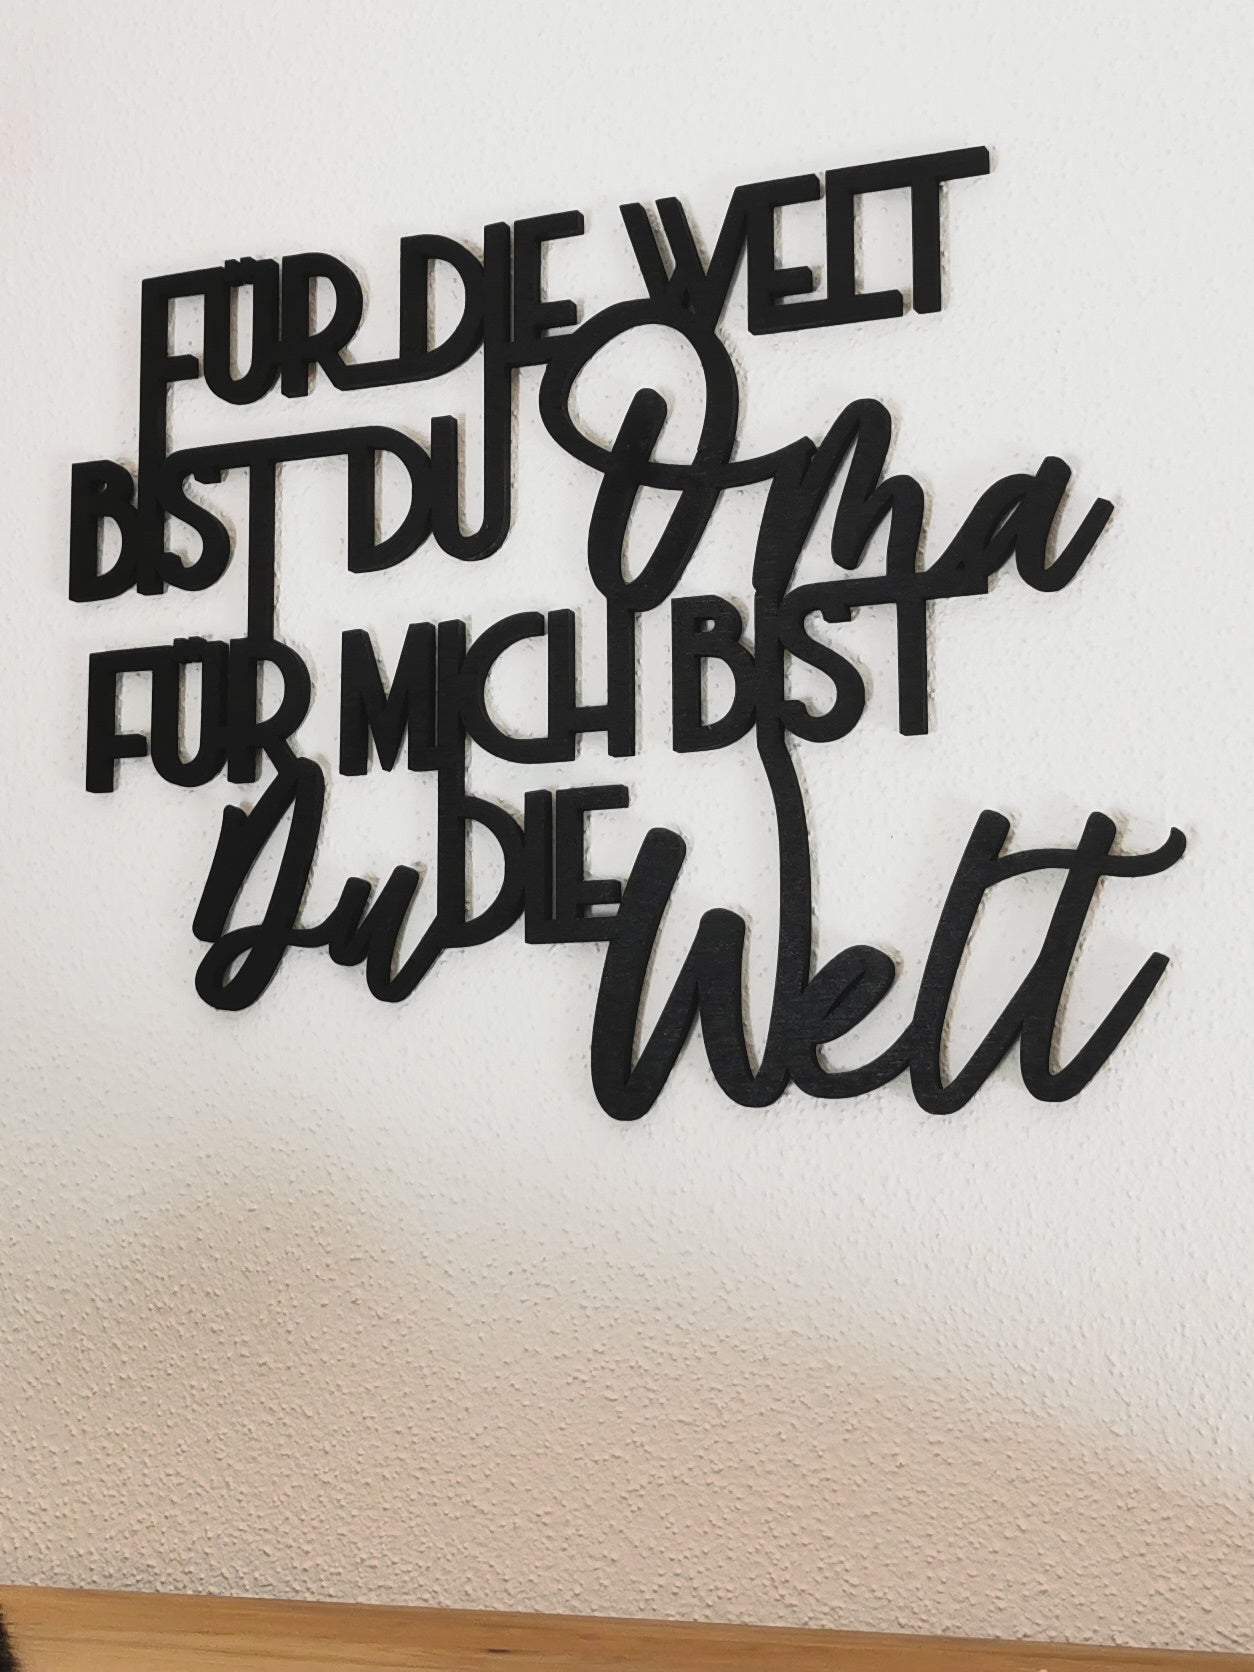 FÜR DIE WELT
BIST DU Oma
FÜR MICH BIST
Du DIE Welt